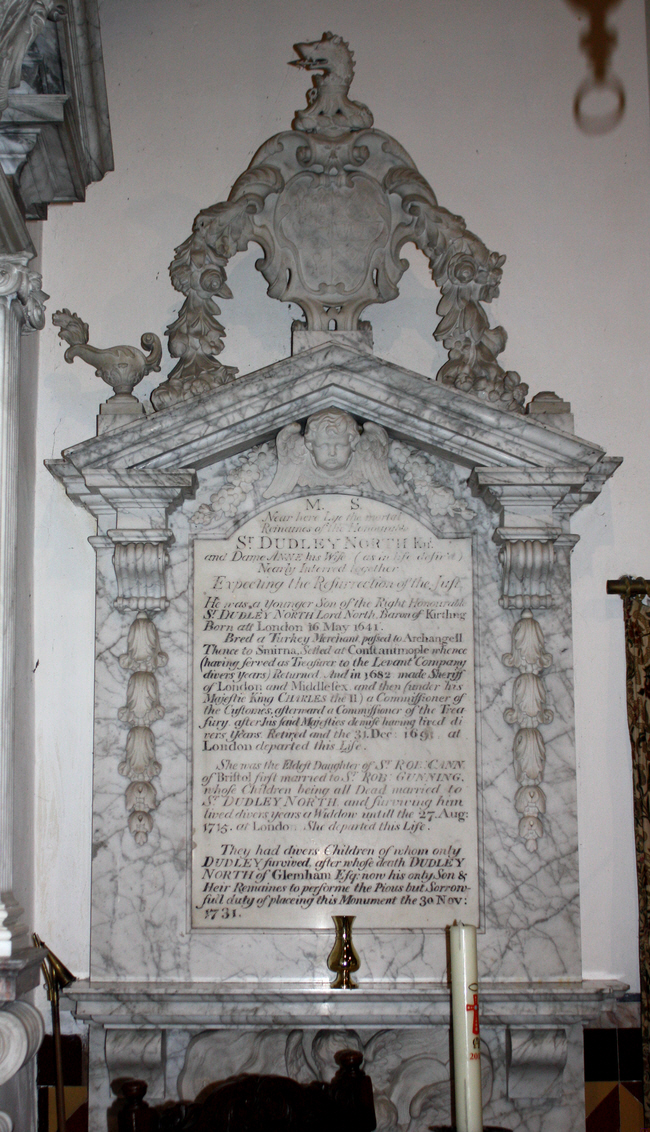 M. S.
Near here Lye the mortal
Remaines of the Honourable
Sr. DUDLEY NORTH Knt.
and Dame ANNE his Wife (as in life desir'd)
Nearly Interred together
Expecting the Resurrection of the Just
He was a Younger Son of the Right Honourable
Sr. DUDLEY NORTH Lord North, Baron of Kirtling
Born att London 16 May 1641.
Bred a Turkey Merchant passed to Archangell
Thence to Smirna, Setled at Constantinople whence
(having served as Treasurer to the Levant Company
divers years) Returned. And in 1682 made Sheriff
of London and Middlesex, and then (under his
Majestie King CHARLES the II) a Commissioner of
the Customes, afterward a Commissioner of the Trea
sury, after his said Majesties demise having lived di
vers Years Retired and the 31 Dec: 1691 at
London departed this Life.
She was the Eldest Daughter of Sr. ROB: CANN,
of Bristol first married to Sr. ROB: GUNNING,
whose Children being all Dead married to
Sr. DUDLEY NORTH, and surviving him
lived divers years a Widdow untill the 27 Aug:
1715. at London: She departed this Life.
They had divers Children of whom only
DUDLEY survived, after whose death DUDLEY
NORTH of Glemham Esqr: now his only Son &
Heir Remaines to performe the Pious but Sorrow-
full duty of placeing this Monument the 30 Nov:
1731.